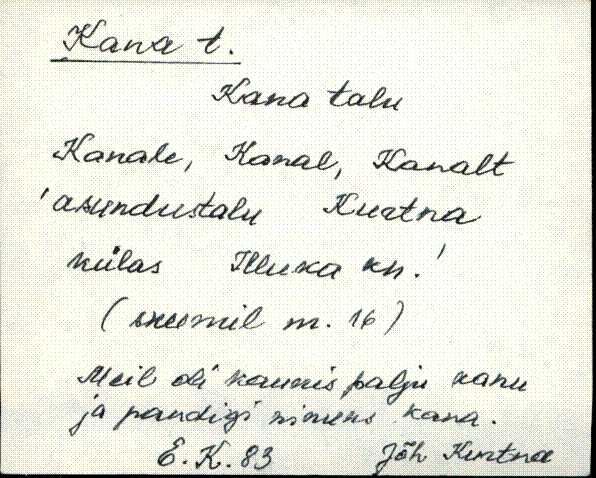 Kana t.
Kana talu
Kanale, Kanal, Kanalt
'asundustalu Kurtna
külas Illuka kn.'
(skeemil nr. 16)
Meil oli kaunis palju kanu
ja pandigi nimeks kana.
E.K. 83 Jõh Kurtna